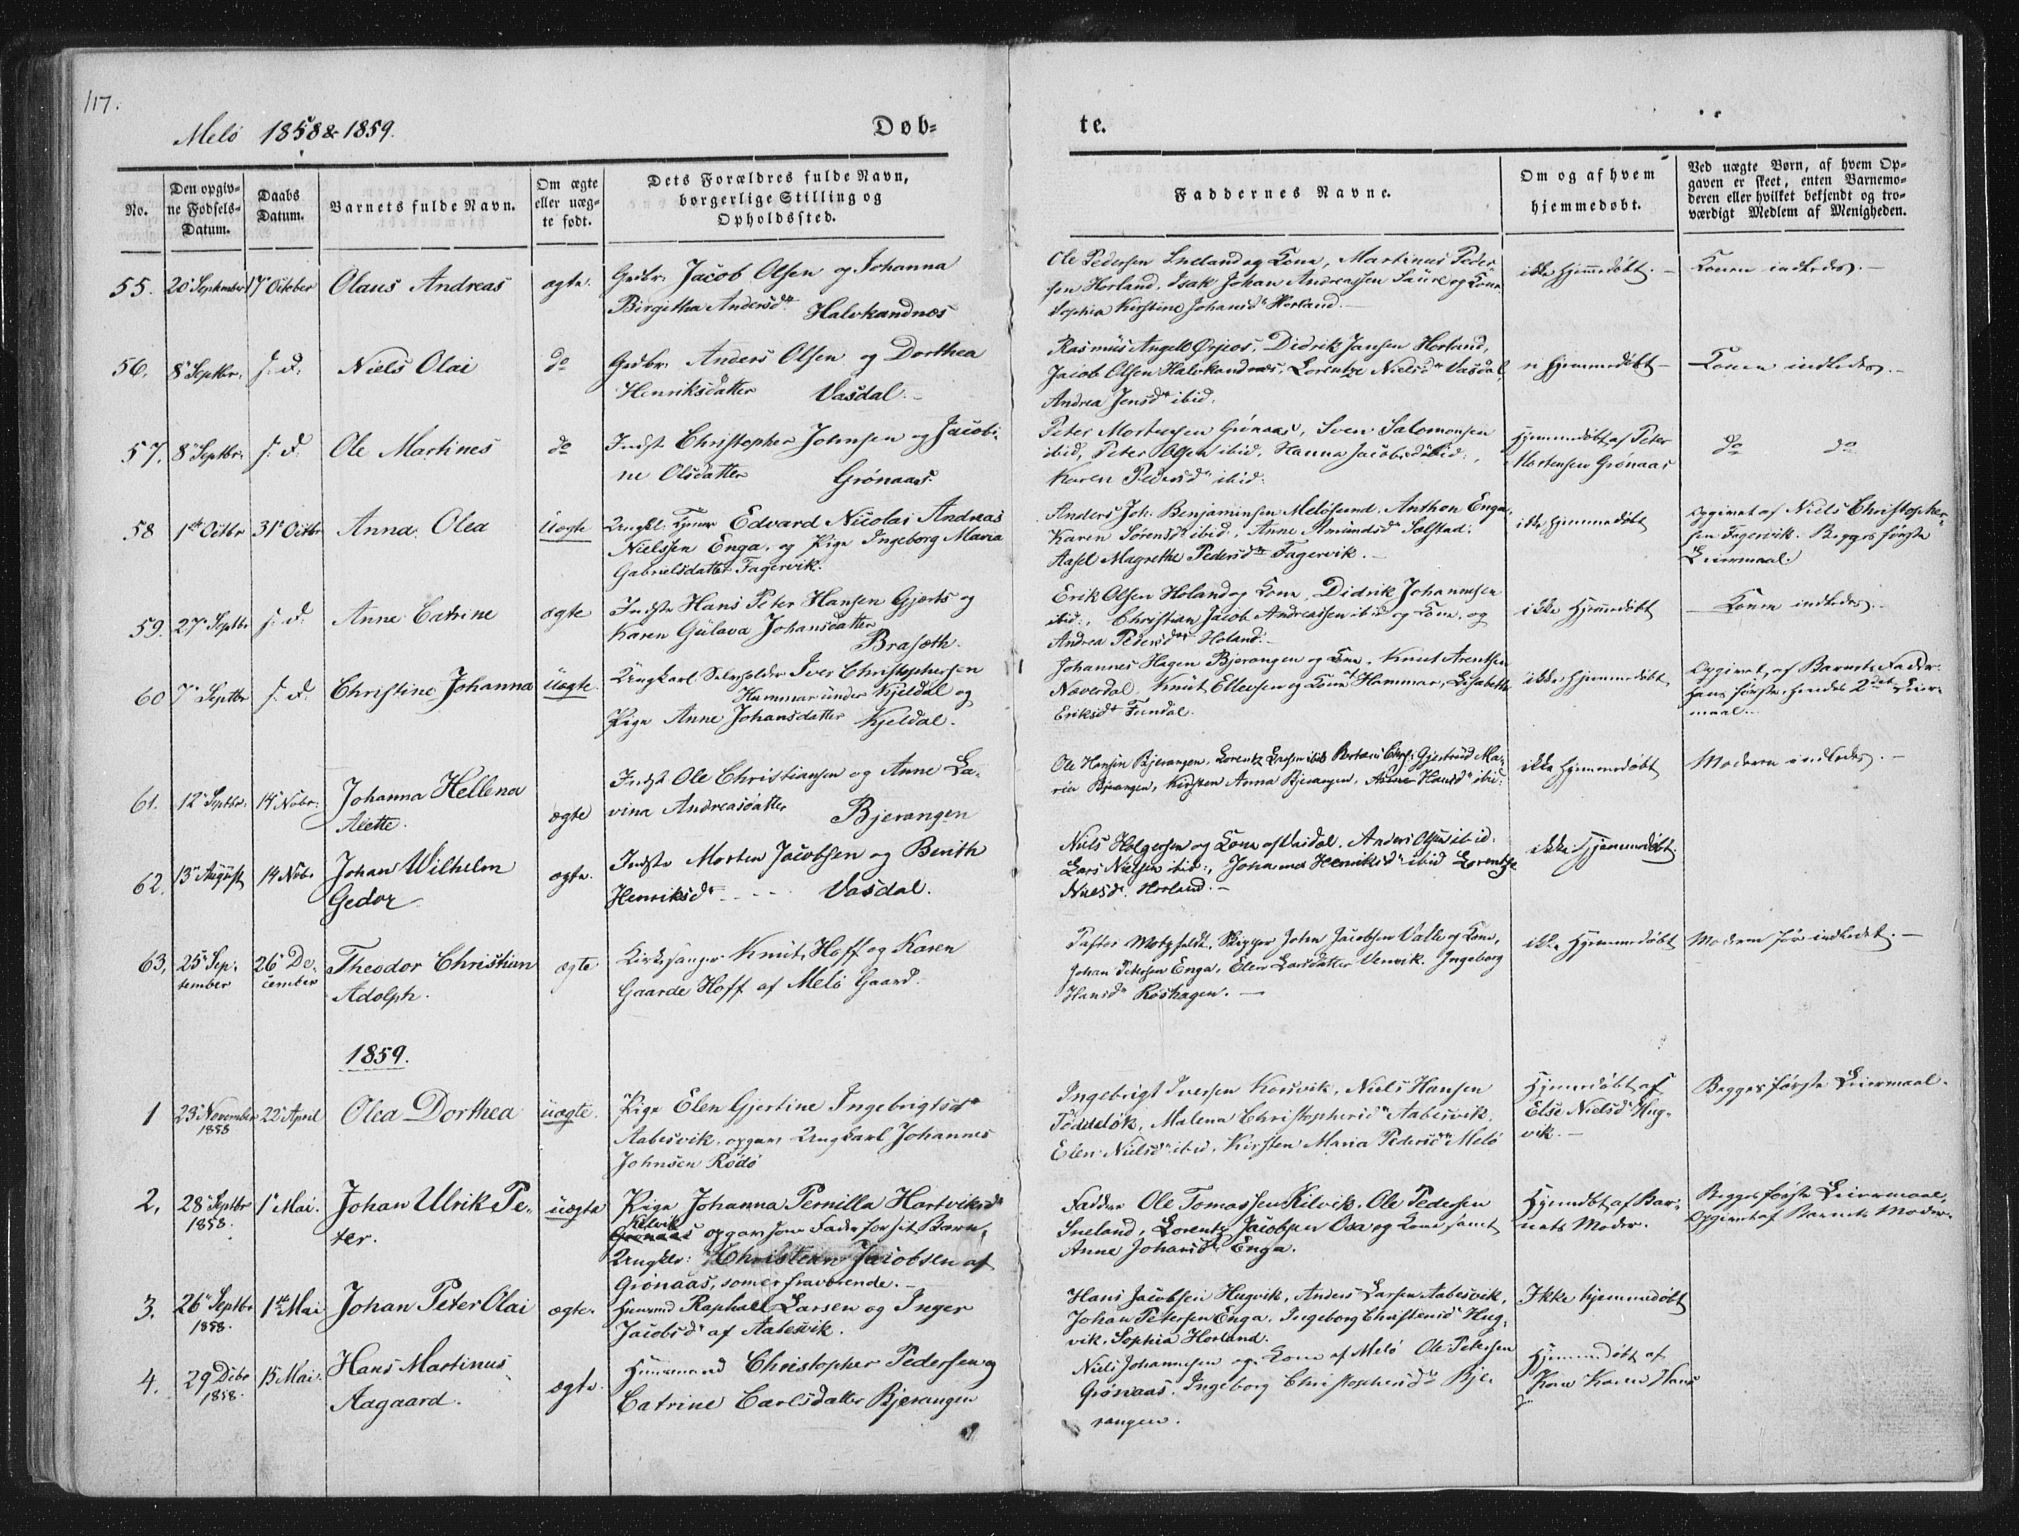 117.
Melö 1858 & 1859.
Døb-
te.
No.
Den opgiv-
ne Fødsels-
Datum.
Daabs
Datum.
Barnets fulde Navn.
Om ægte
eller uæg-
te født.
Dets Forældres fulde Navn,
borgerlige Stilling og
Opholdssted.
Faddernes Navne.
Om og af hvem
hjemmedøbt.
Ved uægte Børn, af hvem Op-
gaven er skeet, enten Barnemo-
deren eller hvilket bekjendt og tro-
værdigt Medlem af Menigheden.
55. 20 September 17 October Olaus Andreas ægte.
Grdbr. Jacob Olsen og Johanna
Birgitha Andersdr Halvkandnæs
Ole Pedersen Sneland og Kone, Martinus Peder-
sen Horland, Isak Johan Andreassen Saure og Kone
Sophia Kirstine Johansdr Horland.
ikke hjemmedøbt. —
Konen indledes. —
56. 8 Septbr. s. d. Niels Olai do
Grdbr. Anders Olsen og Dorthea
Henriksdatter Vasdal. —
Rasmus Angell Ørpos, Didrik Jansen Horland,
Jacob Olsen Halvkandnæs, Lorentze Nielsdr Vasdal,
Andrea Jensdr ibid.
ei hjemmedøbt —
Konen indledes. —
57. 8 Septbr. s. d. Ole Martines do
Indst. Christopher Johnsen og Jacobi-
ne Olsdatter Grönaas.
Peter Mortensen Grönaas, Sven Salomonsen
ibid, Peter Olsen ibid, Hanna Jacobsdr ibid.,
Karen Pedersdr ibid.
Hjemmedøbt af Peter
Mortensen Grönaas
do do
58 1ste Octbr 31 Octbr Anna Olea üægte
Ungkl. Edvard Nicolai Andreas
Nielssen Enga, og Pige Ingeborg Maria
Gabrielsdatter Fagervik.
Anders Joh. Benjaminsen Melösund, Anthon Enga,
Karen Sörensdr ibid., Anne Amundsdr Solstad,
Axel Magrethe Pedersdr Fagervik. —
ikke hjemmedøbt
Opgivet af Niels Christopher-
sen Fagervik. Begges første
Leiermaal.
59. 27 Septbr s. d. Anne Catrine ægte
Indste Hans Peter Hansen Gjerts og
Karen Gülava Johansdatter
Brasæth.
Erik Olsen Holand og Kone, Didrik Johannesen
ibid., Christian Jacob Andreassen ibid og Kone, og
Andrea Pedersdr Holand. —
ikke hjemmedøbt
— Konen indledes. —
60 7 Septbr s. d. Christine Johanna üægte.
Ungkarl Selvholder Iver Christophersen
Hammar under Kjeldal og
Pige Anne Johansdatter Kjeldal.
Johannes Hagen Bjerangen og Kone, Knut Arentsen
Naverdal, Knut Ellevsen og Kone Hammar, Lisabeth
Eriksdr Fondal.
ikke hjemmedøbt
Opgivet af Barnets Fader.
Hans første, hendes 2det Leier-
maal. —
61. 12 Septbr. 14 Nobr. Johanna Hellena
Alette. ægte
Indst. Ole Christiansen og Anne La-
vina Andreasdatter Bjerangen
Ole Hansen Bjerangen, Lorentz ibid Gjertrud Ma-
ria Bjerangen, Kirsten Anna Bjerangen, Anne Hansdr ibid.
ikke hjemmedøbt
Moderen indledes. —
62. 13 August 14 Nobr Johan Wilhelm
Gedor ægte.
Indste Morten Jacobsen og Berith
Henriksdr - - - - Vasdal.
Niels Holgersen og Kone af Vasdal, Anders Olsen ibid.
Lars Nielsen ibid., Johanna Henriksdr ibid Lorentze
Nielsdr Horland. —
ikke hjemmedøbt
63. 25 Sep-
tember 26 De-
cember Theodor Christian
Adolph. ægte
Kirkesanger Knut Hoff og Karen
Gaarde Hoff af Melö Gaard.
Pastor Motzfeldt, Skipper John Jacobsen Valle og Kone,
Johan Petersen Enga, Elen Larsdatter Venvik, Ingeborg
Hansdr Röshagen. —
ikke hjemmedøbt
Moderen før indledet. —
1859.
1 23 November
1858 22 April Olea Dorthea üægte.
Pige Elen Gjertine Ingebrigtsdr
Aabesvik, opgav Ungkarl Johannes
Johnsen Rödö
Ingebrigt Iversen Korsvik, Niels Hansen
Töddelök, Malena Christophersdr Aabesvik,
Elen Nielsdr ibid, Kirsten Maria Pedersdr Melö
Hjemmedøbt af
Else Nielsdr Hug-
vik. —
Begges første Leiermaal.
2. 28 Septbr
1858. 1 Mai. Johan Ulrik Pe-
ter. üægte
Pige Johanna Pernilla Hartviksdr
Kilvik
Grönaas opgav som Fader for sit Barn,
Ungkar: Christian Jacobsen af
Grönaas, som er fraværende. —
Faddere Ole Tomassen Kilvik, Ole Pedersen
Sneland, Lorentz Jacobsen Osa og Kone samt
Anne Johansdr Enga.
Hjemdbt af Bar-
nets Moder.
Begges første Leiermaal,
Opgivet af Barnets Moder.
3. 26 Septbr
1858. 1ste Mai Johan Peter Olai ægte.
Huusmd Raphael Larsen og Inger
Jacobsdr af Aabesvik.
Hans Jacobsen Hugvik, Anders Larsen Aabesvik,
Johan Petersen Enga, Ingeborg Christensdr Hug-
vik, Sophia Horland.
Ikke hjemmedøbt
4. 29 Debr
1858. 15 Mai. Hans Martinus
Aagaard. ægte.
Huusmand Christopher Pedersen og
Catrine Carlsdatter Bjerangen
Niels Johannesen og Kone af Melö Ole Petersen
Grönaas, Ingeborg Christophersdr Bje-
rangen.
Hjemmedøbt af
Kone Karen Hans